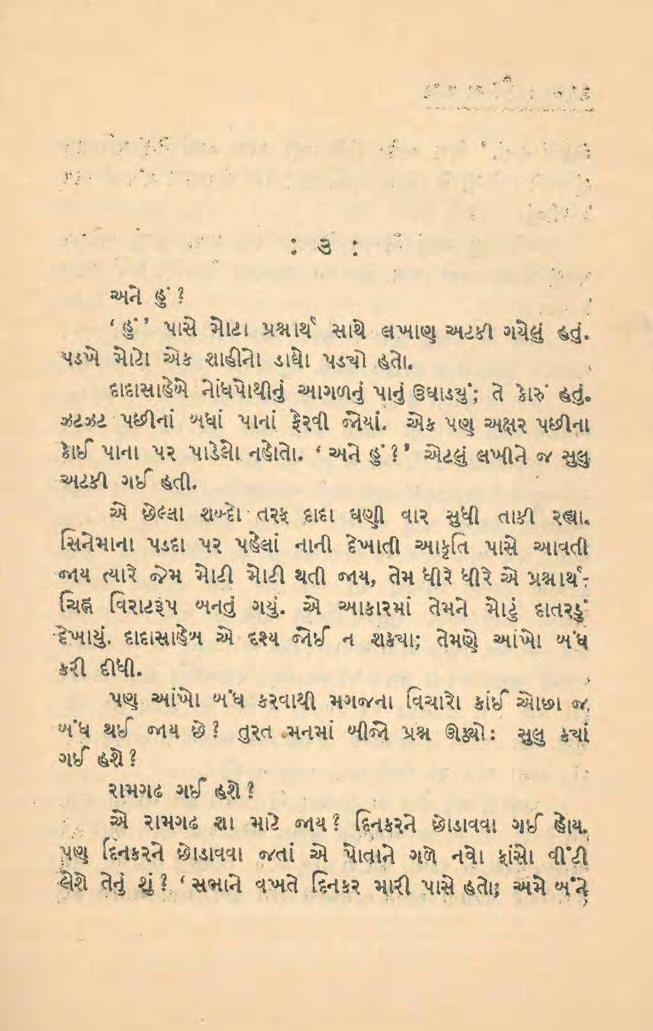 : ૩ :
અને હું ?
‘ હું ’ પાસે મોટા પ્રશ્નાર્થ સાથે લખાણ અટકી ગયેલું હતું.
પડખે મોટો એક શાહીનો ડાઘો પડ્યો હતો.
દાદાસાહેબે નોંધપોથીનું આગળનું પાનું ઉઘાડ્યું; તે કોરું હતું.
ઝટઝટ પછીનાં બધાં પાનાં ફેરવી જોયાં. એક પણ અક્ષર પછીના
કોઈ પાના પર પાડેલો નહોતો. ‘ અને હું ? ’ એટલું લખીને જ સુલુ
અટકી ગઈ હતી.
એ છેલ્લા શબ્દો તરફ દાદા ઘણી વાર સુધી તાકી રહ્યા.
સિનેમાના પડદા પર પહેલાં નાની દેખાતી આકૃતિ પાસે આવતી
જાય ત્યારે જેમ મોટી મોટી થતી જાય, તેમ ધીરે ધીરે એ પ્રશ્નાર્થ-
ચિહ્ન વિરાટરૂપ બનતું ગયું. એ આકારમાં તેમને મોટું દાતરડું
દેખાયું. દાદાસાહેબ એ દૃશ્ય જોઈ ન શક્યા; તેમણે આંખો બંધ
કરી દીધી.
પણ આંખો બંધ કરવાથી મગજના વિચારો કાંઈ ઓછા જ
બંધ થઈ જાય છે ? તુરત મનમાં બીજો પ્રશ્ન ઊઠ્યો : સુલુ ક્યાં
ગઈ હશે ?
રામગઢ ગઈ હશે ?
એ રામગઢ શા માટે જાય ? દિનકરને છોડાવવા ગઈ હોય.
પણ દિનકરને છોડાવવા જતાં એ પોતાને ગળે નવો ફાંસો વીંટી
લેશે તેનું શું ? ‘ સભાને વખતે દિનકર મારી પાસે હતો; અમે બંને